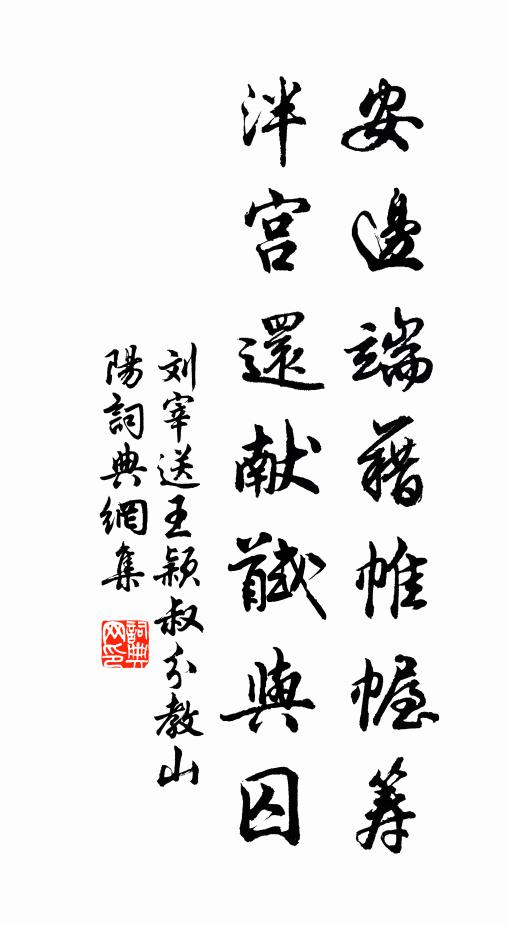 安邊端藉帷幄筹
泮宫還献馘與囚
刘宰送王颍叔分教山
陽詞典網集
詞典网印